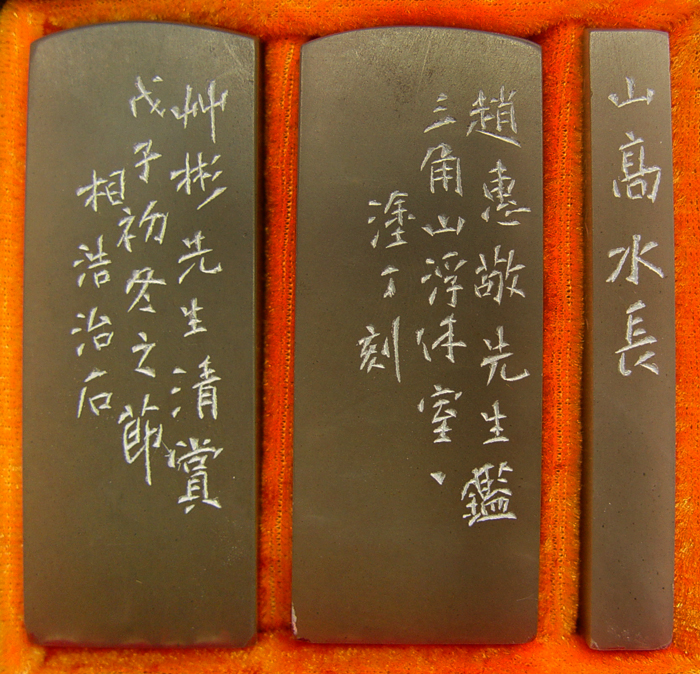 山髙水長
趙惠敞先生鑑
三角山浮休室、
塗丁刻
艸彬先生清賞
戊子初冬之節
相浩治石